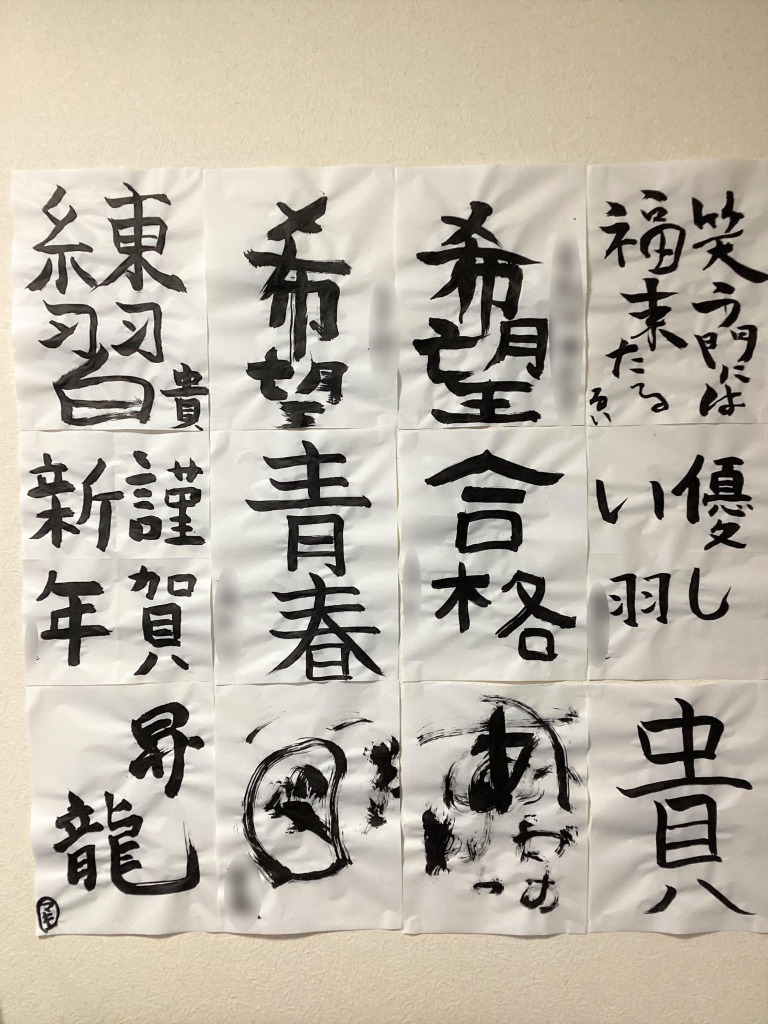 練習
貴
希望
希望
笑う門には
福来たる
るい
謹賀
新年
青春
合格
優し
い羽
昇
龍
マキ
あ
貴